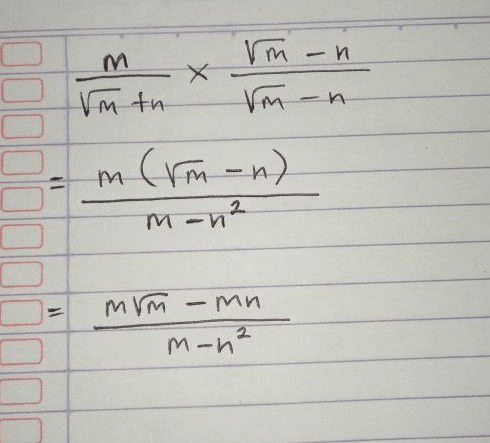 m/(√m + n) × (√m − n)/(√m − n)
= m(√m − n)/(m − n²)
= (m√m − mn)/(m − n²)